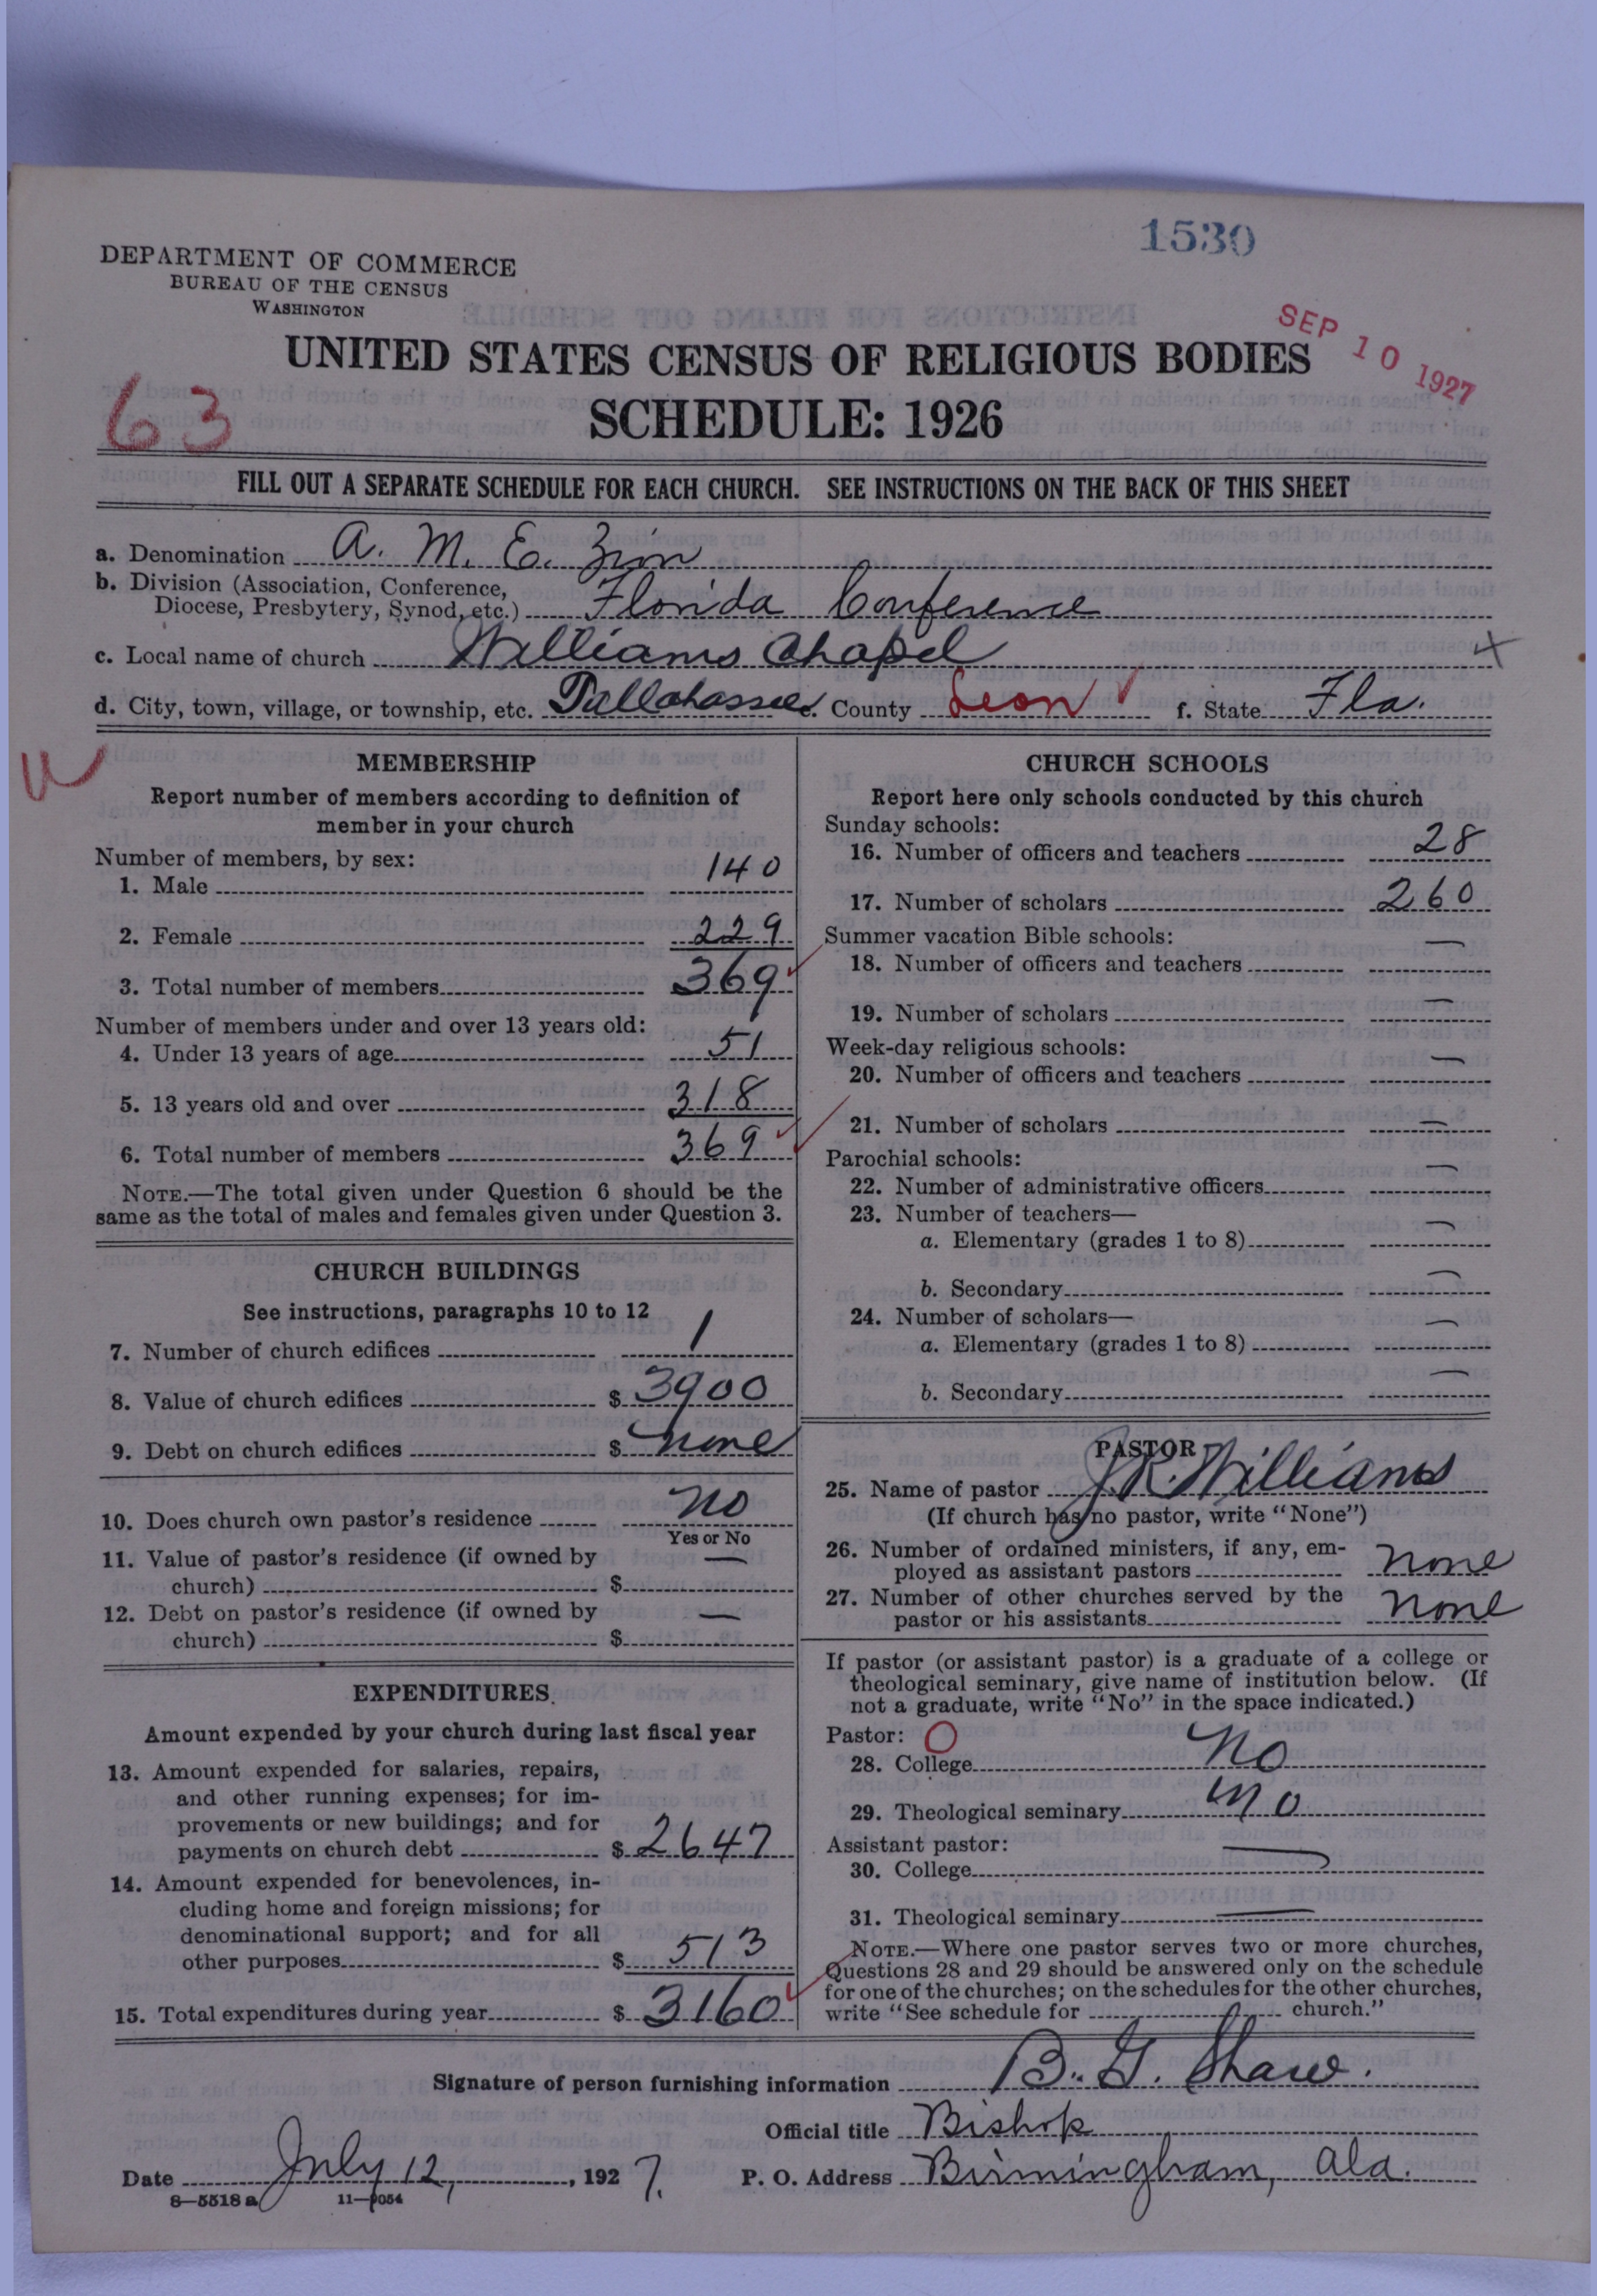 1530
DEPARTMENT OF COMMERCE
BUREAU OF THE CENSUS
WASHINGTON
SEP 10 1927
UNITED STATES CENSUS OF RELIGIOUS BODIES
63
SCHEDULE: 1926
FILL OUT A SEPARATE SCHEDULE FOR EACH CHURCH. SEE INSTRUCTIONS ON THE BACK OF THIS SHEET
a. Denomination A. M. E. Zion
b. Division (Association, Conference,
Diocese, Presbytery, Synod, etc.) Florida Conference
c. Local name of church Williams Chapel
d. City, town, village, or township, etc. Tallahassee e. County Leon f. State Fla.
MEMBERSHIP
Report number of members according to definition of
member in your church
Number of members, by sex:
1. Male 140
2. Female 229
3. Total number of members 369
Number of members under and over 13 years old:
4. Under 13 years of age 51
5. 13 years old and over 318
6. Total number of members 369
NOTE.—The total given under Question 6 should be the
same as the total of males and females given under Question 3.
CHURCH BUILDINGS
See instructions, paragraphs 10 to 12
7. Number of church edifices 1
8. Value of church edifices $ 3900
9. Debt on church edifices $ none
10. Does church own pastor's residence no
Yes or No
11. Value of pastor's residence (if owned by
church) $ —
12. Debt on pastor's residence (if owned by
church) $ —
EXPENDITURES
Amount expended by your church during last fiscal year
13. Amount expended for salaries, repairs,
and other running expenses; for im-
provements or new buildings; and for
payments on church debt $ 2647
14. Amount expended for benevolences, in-
cluding home and foreign missions; for
denominational support; and for all
other purposes $ 513
15. Total expenditures during year $ 3160
CHURCH SCHOOLS
Report here only schools conducted by this church
Sunday schools:
16. Number of officers and teachers 28
17. Number of scholars 260
Summer vacation Bible schools:
18. Number of officers and teachers —
19. Number of scholars —
Week-day religious schools:
20. Number of officers and teachers —
21. Number of scholars —
Parochial schools:
22. Number of administrative officers —
23. Number of teachers—
a. Elementary (grades 1 to 8) —
b. Secondary —
24. Number of scholars—
a. Elementary (grades 1 to 8) —
b. Secondary —
PASTOR
25. Name of pastor J. R. Williams
(If church has no pastor, write "None")
26. Number of ordained ministers, if any, em-
ployed as assistant pastors none
27. Number of other churches served by the
pastor or his assistants none
If pastor (or assistant pastor) is a graduate of a college or
theological seminary, give name of institution below. (If
not a graduate, write "No" in the space indicated.)
Pastor: O
28. College no
29. Theological seminary no
Assistant pastor:
30. College —
31. Theological seminary —
NOTE.—Where one pastor serves two or more churches,
Questions 28 and 29 should be answered only on the schedule
for one of the churches; on the schedules for the other churches,
write "See schedule for church."
Signature of person furnishing information B. G. Shaw.
Official title Bishop
Date July 12, 1927. P. O. Address Birmingham, Ala.
8—5518 a 11—9054